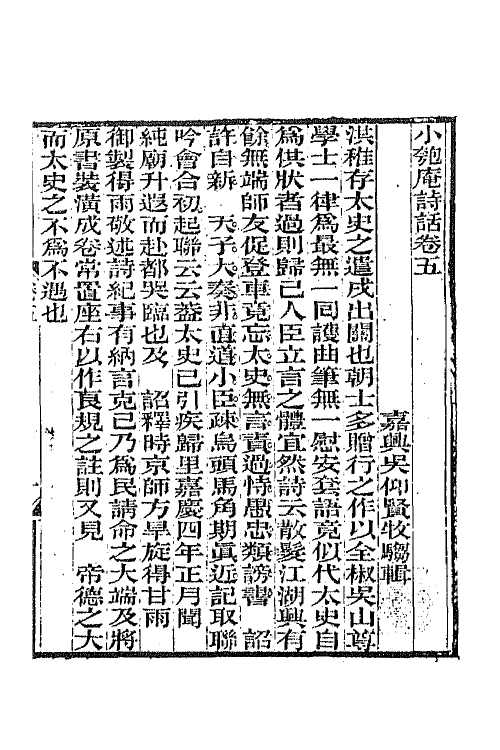 小匏庵詩話卷五
嘉興吳仰賢牧騶輯
洪稚存太史之遣戍出關也朝士多贈行之作以全椒吳山尊
學士一律為最無一回護曲筆無一慰安套語竟似代太史自
為供狀者過則歸己人臣立言之體宜然詩云散髮江湖興有
餘無端師友促登車竟忘太史無言責過恃愚忠類謗書 詔
許自新 天子大奏非直道小臣疎烏頭馬角期真近記取聯
吟會合初起聯云云蓋太史已引疾歸里嘉慶四年正月聞
純廟升遐而赴都哭臨也及 詔釋時京師方旱旋得甘雨
御製得雨敬述詩紀事有納言克己乃為民請命之大端及將
原書裝潢成卷常置座右以作良規之註則又見 帝德之大
而太史之不為不遇也